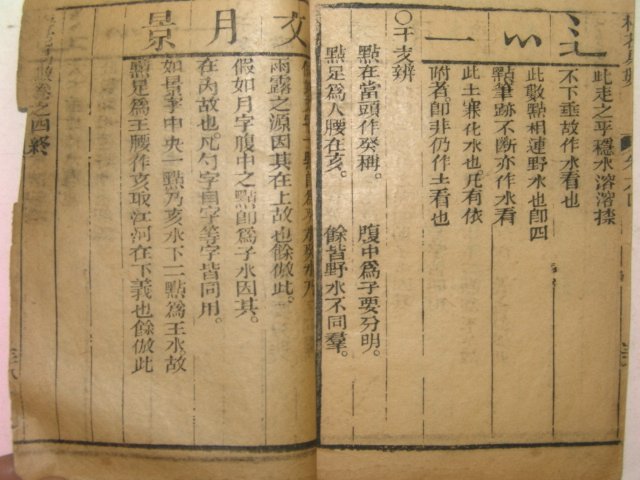 辶
此走之平穩水溶溶揉
不下垂故作水看也
灬
此㪣點相連野水也卽四
點筆跡不斷亦作水看
一
此土寨化水也凡有依
附者卽非仍作土看也
〇干支辨
點在當頭作癸稱。腹中爲子要分明。
點足爲人腰在亥。餘皆野水不同羣。
文
雨露之源因其在上故也餘倣此。
月
假如月字腹中之點卽爲子水因其。
在內故也。凡勺字囯字等字皆同用。
景
如景字中央一點乃亥水下二點爲王水故
點足爲王腰作亥取江河在下義也餘倣此
卷之四終